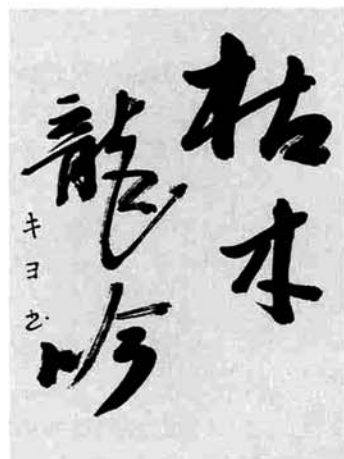 枯木
龍吟
キヨ書